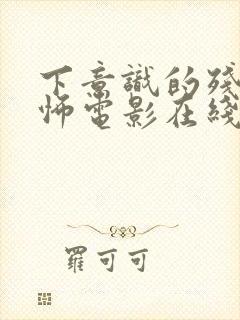 下意識的殘
怖電影在綫
羅可可